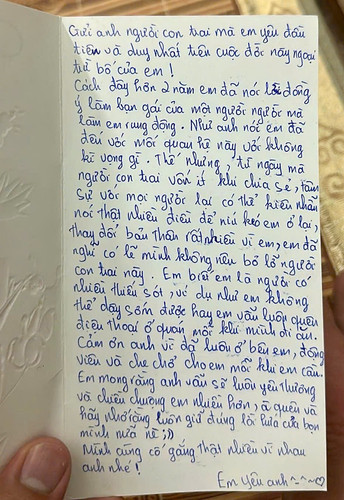 Gửi anh người con trai mà em yêu đầu
tiên và duy nhất trên cuộc đời này ngoại
trừ bố của em !
Cách đây hơn 2 năm em đã nói lời đồng
ý làm bạn gái của một người người mà
làm em rung động. Như anh nói em đã
đến với mối quan hệ này với không
kì vọng gì. Thế nhưng, từ ngày mà
người con trai vốn ít khi chia sẻ, tâm
sự với mọi người lại có thể kiên nhẫn
nói thật nhiều điều để níu kéo em ở lại,
thay đổi bản thân rất nhiều vì em, em đã
nghĩ có lẽ mình không nên bỏ lỡ người
con trai này. Em biết em là người có
nhiều thiếu sót, ví dụ như em không
thể dậy sớm được hay em vẫn luôn quên
điện thoại ở quán mỗi khi mình đi ăn.
Cảm ơn anh vì đã luôn ở bên em, động
viên và che chở cho em mỗi khi em cần.
Em mong rằng anh vẫn sẽ luôn yêu thương
và chiều chương em nhiều hơn, à quên và
hãy nhớ rằng luôn giữ đúng lời hứa của bọn
mình nữa nè ;))
Mình cùng cố gắng thật nhiều vì nhau
anh nhé !
Em yêu anh ^~^♡